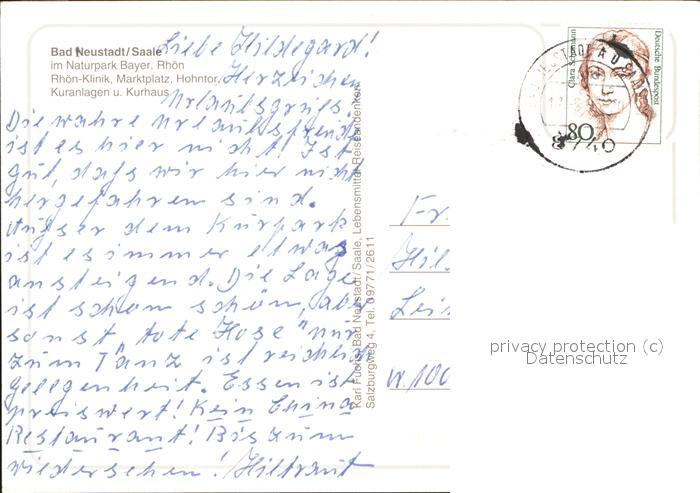 Bad Neustadt/Saale
im Naturpark Bayer. Rhön
Rhön-Klinik, Marktplatz, Hohntor,
Kuranlagen u. Kurhaus
Liebe Hildegard!
Herzlichen
Urlaubsgruß!
Die wahre Urlaubsfreude
ist es hier nicht! Ist
gut, daß wir hier nicht
hergefahren sind.
Außer dem Kurpark
ist es immer etwas
ansteigend. Die Lage
ist schon schön, aber
sonst "tote Hose" nur
zum Tanz ist reichlich
gelegenheit. Essen ist
preiswert! Kein China
Restaurant! Bis zum
wiedersehen! Hiltraut
Karl Fuchs, Bad Neustadt/Saale, Lebensmittel-Reiseandenken
Salzburgweg 4, Tel. 09771/2611
Clara Schumann
Deutsche Bundespost
80
8740
Fr.
Hil
Lei
W. 100
privacy protection (c)
Datenschutz